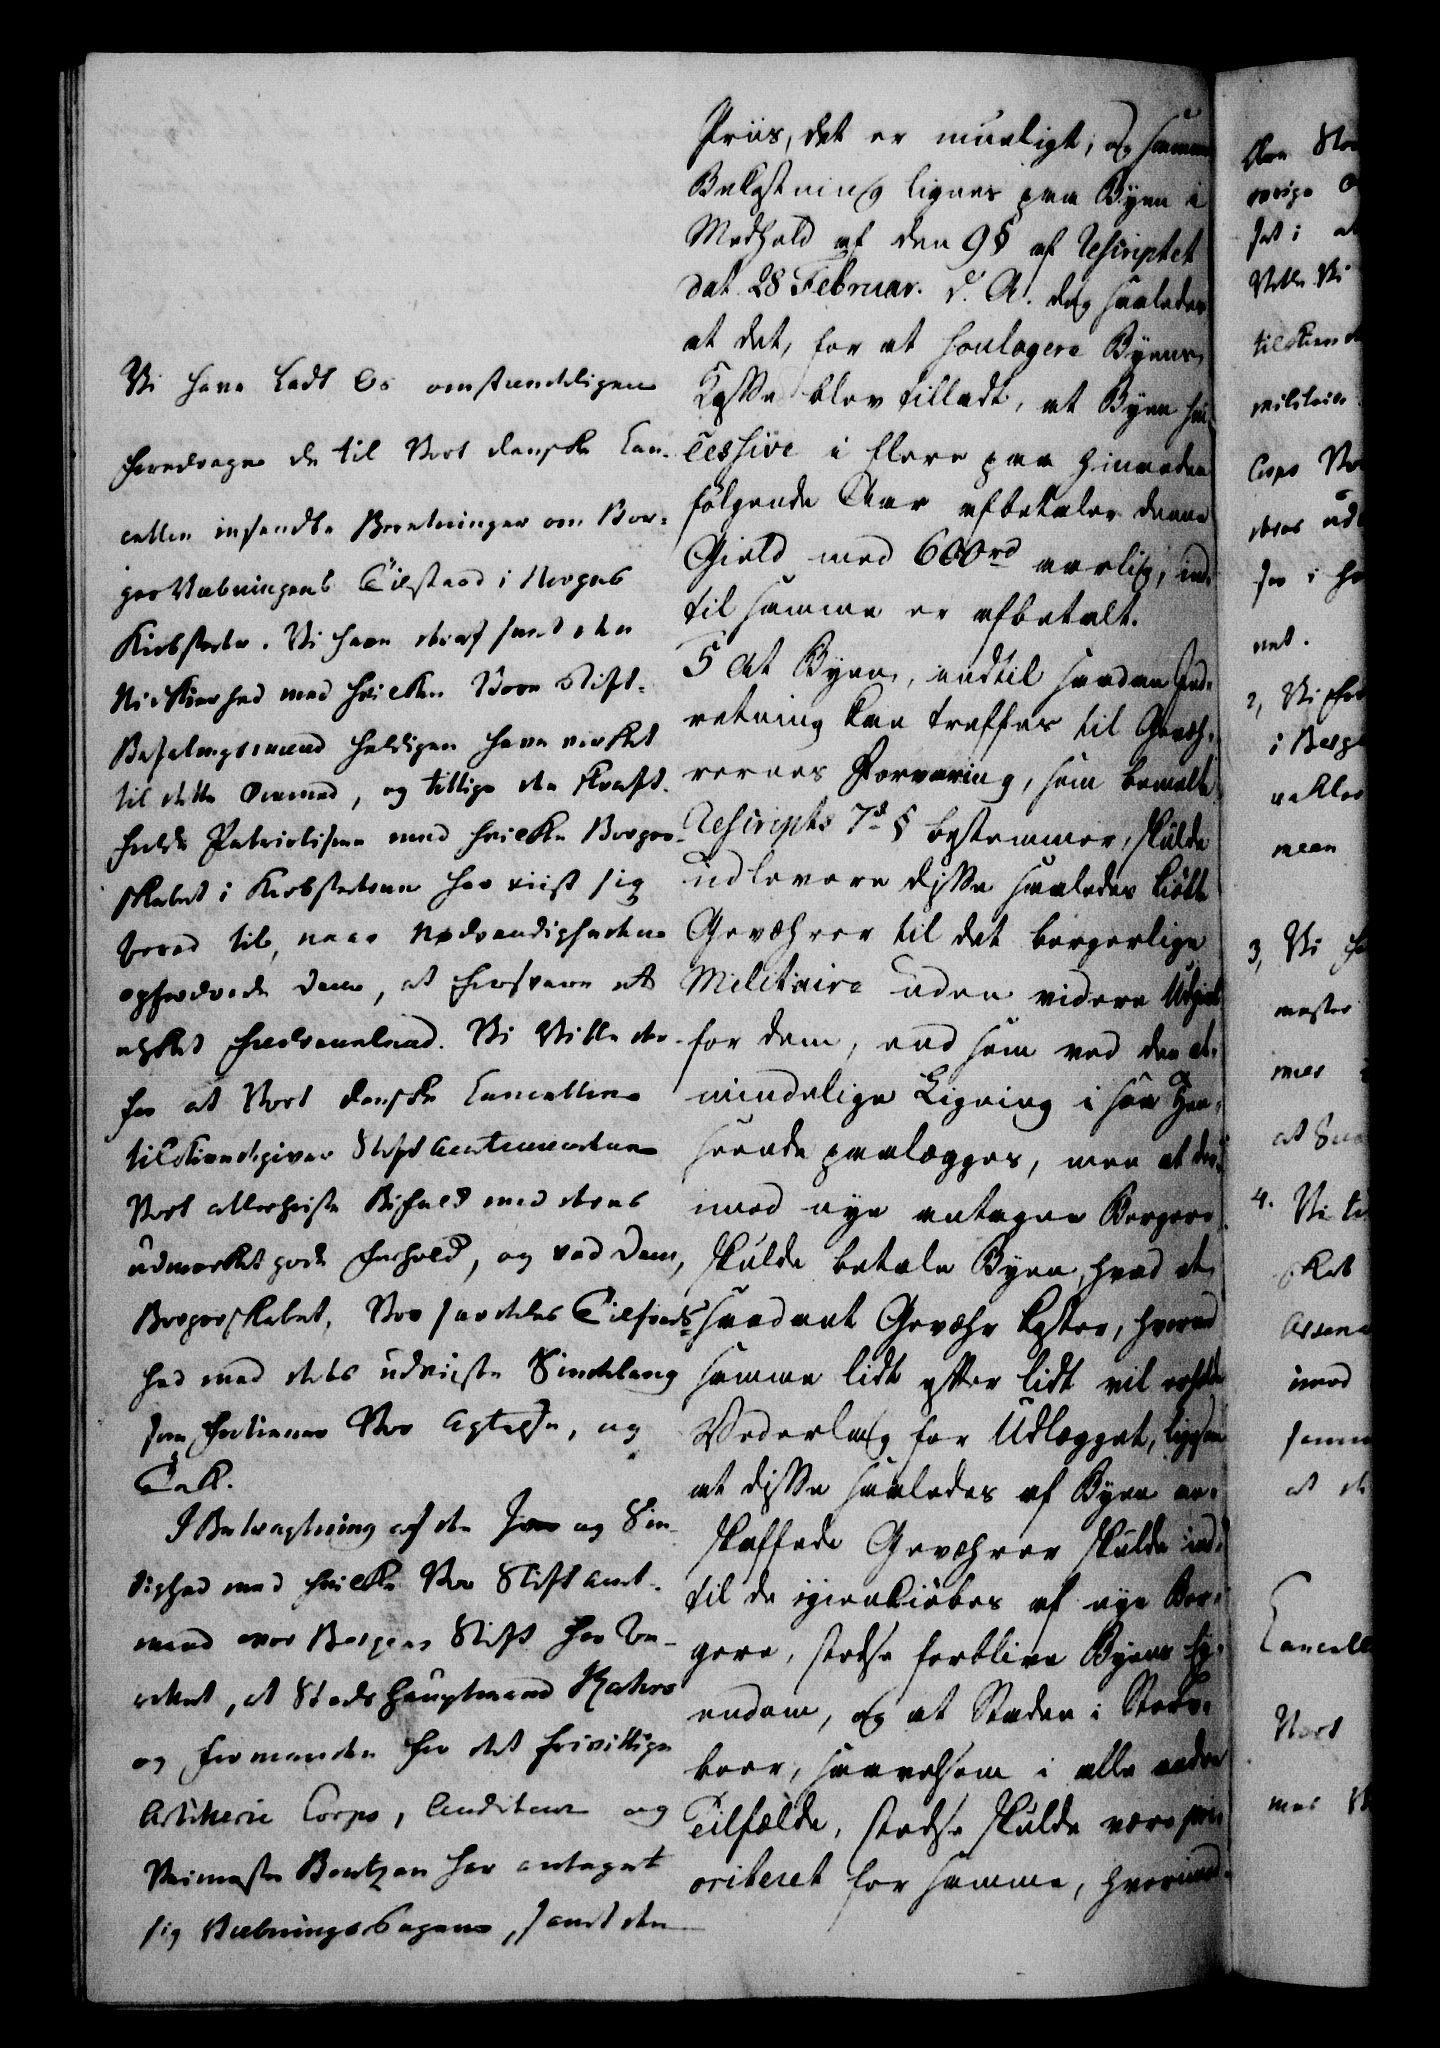 Vi have ladt Os omstændeligen
foredrage de til Vort danske Can-
cellie indsendte Beretninger om Bor-
ger Væbningens Tilstand i Norges
Kiøbstæder. Vi have deraf seet den
Nidkierhed med hvilken Vore Stift-
Befalingsmænd heldigen have virket
til dette Øiemed, og tillige den kraft-
fulde Patriotisme med hvilken Borger-
skabet i Kiøbstæderne har viist sig
bered til, naar Nødvendigheden
opfordrede dem, at forsvare et
elsket Fædreneland. Vi Ville der-
for at Vort danske Cancellie
tilkiendegiver Stiftamtmændene
Vort allerhøieste Bifald med deres
udmærket gode Forhold, og ved dem,
Borgerskabet, Vor særdeles Tilfreds-
hed med dets udviiste Sindelaug
som fortiener Vor Agtelse, og
Tak.
I Betragtning af den Iver og Sin-
dighed med hvilken Vor Stiftamt-
mand over Bergens Stift har be-
rettet, at Stads Hauptmand Rahrs
og Formanden for det frivillige
Artillerie Corps, Auditeur og
Veimester Bentzen har antaget
sig Væbnings Sagen, samt den
Priis, det er mueligt, og samme
Bekostning lignes paa Byen i
Medhold af den 9 § af Rescriptet
dat. 28 Februar. d. A. dog saaledes
at det, for at soulagere Byens
Casse blev tilladt, at Byen suc-
cessive i flere paa hinanden
følgende Aar afbetaler denne
Gield med 600rd aarlig, ind-
til samme er afbetalt.
5 At Byen, indtil saadan Ind-
retning kan treffes til Gevæh-
rernes Forvaring, som bemelte
Rescripts 7de § bestemmer, skulde
udlevere disse saaledes kiøbte
Gevæhrer til det borgerlige
Militaire uden videre Udgivt
for dem, end som ved den al-
mindelige Ligning i saa Hen-
seende paalegges, men at der-
imod nye antagne Borgere
skulde betale Byen, hvad et
saadant Gevæhr koster, hvorved
samme lidt efter lidt vil erholde
Vederlag for Udlægget, ligesom
at disse saaledes af Byen an-
skaffede Gevæhrer skulde ind-
til de igienkiøbes af nye Bor-
gere, stedse forblive Byens Ei-
endom, og at Staden i Sterv-
boer, saavelsom i alle andre
Tilfælde, stedse skulde være pri-
oriteret for samme, hvorimod